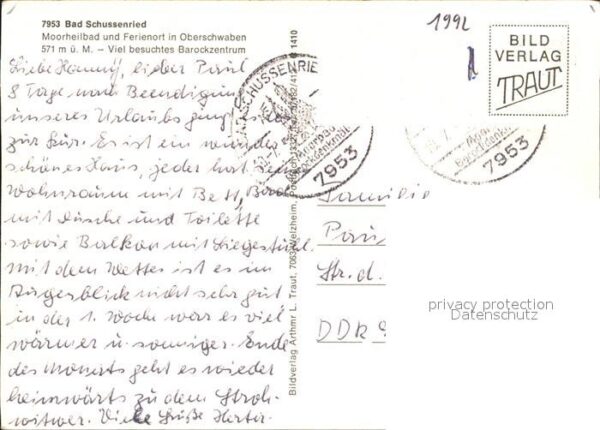 7953 Bad Schussenried
Moorheilbad und Ferienort in Oberschwaben
571 m ü. M. – Viel besuchtes Barockzentrum
Liebe Hanny, lieber Paul
8 Tage nach Beendigung
unseres Urlaubs ging es
zur Kur. Es ist ein wunder
schönes Haus, jeder hat sein
Wohnraum mit Bett, Bad
mit Dusche und Toilette
sowie Balkon mit Liegestuhl.
Mit dem Wetter ist es im
Augenblick nicht sehr gut
in der 1. Woche war es viel
wärmer u. sonniger. Ende
des Monats geht es wieder
heimwärts zu dem Stroh-
witwer. Viele Grüße Herta.
Bildverlag Arthur L. Traut, 7063 Welzheim,
1410
1992
BILD
VERLAG
TRAUT
BAD SCHUSSENRIED
7953
7953
Familie
Paul
Str. d.
DDR
privacy protection
Datenschutz